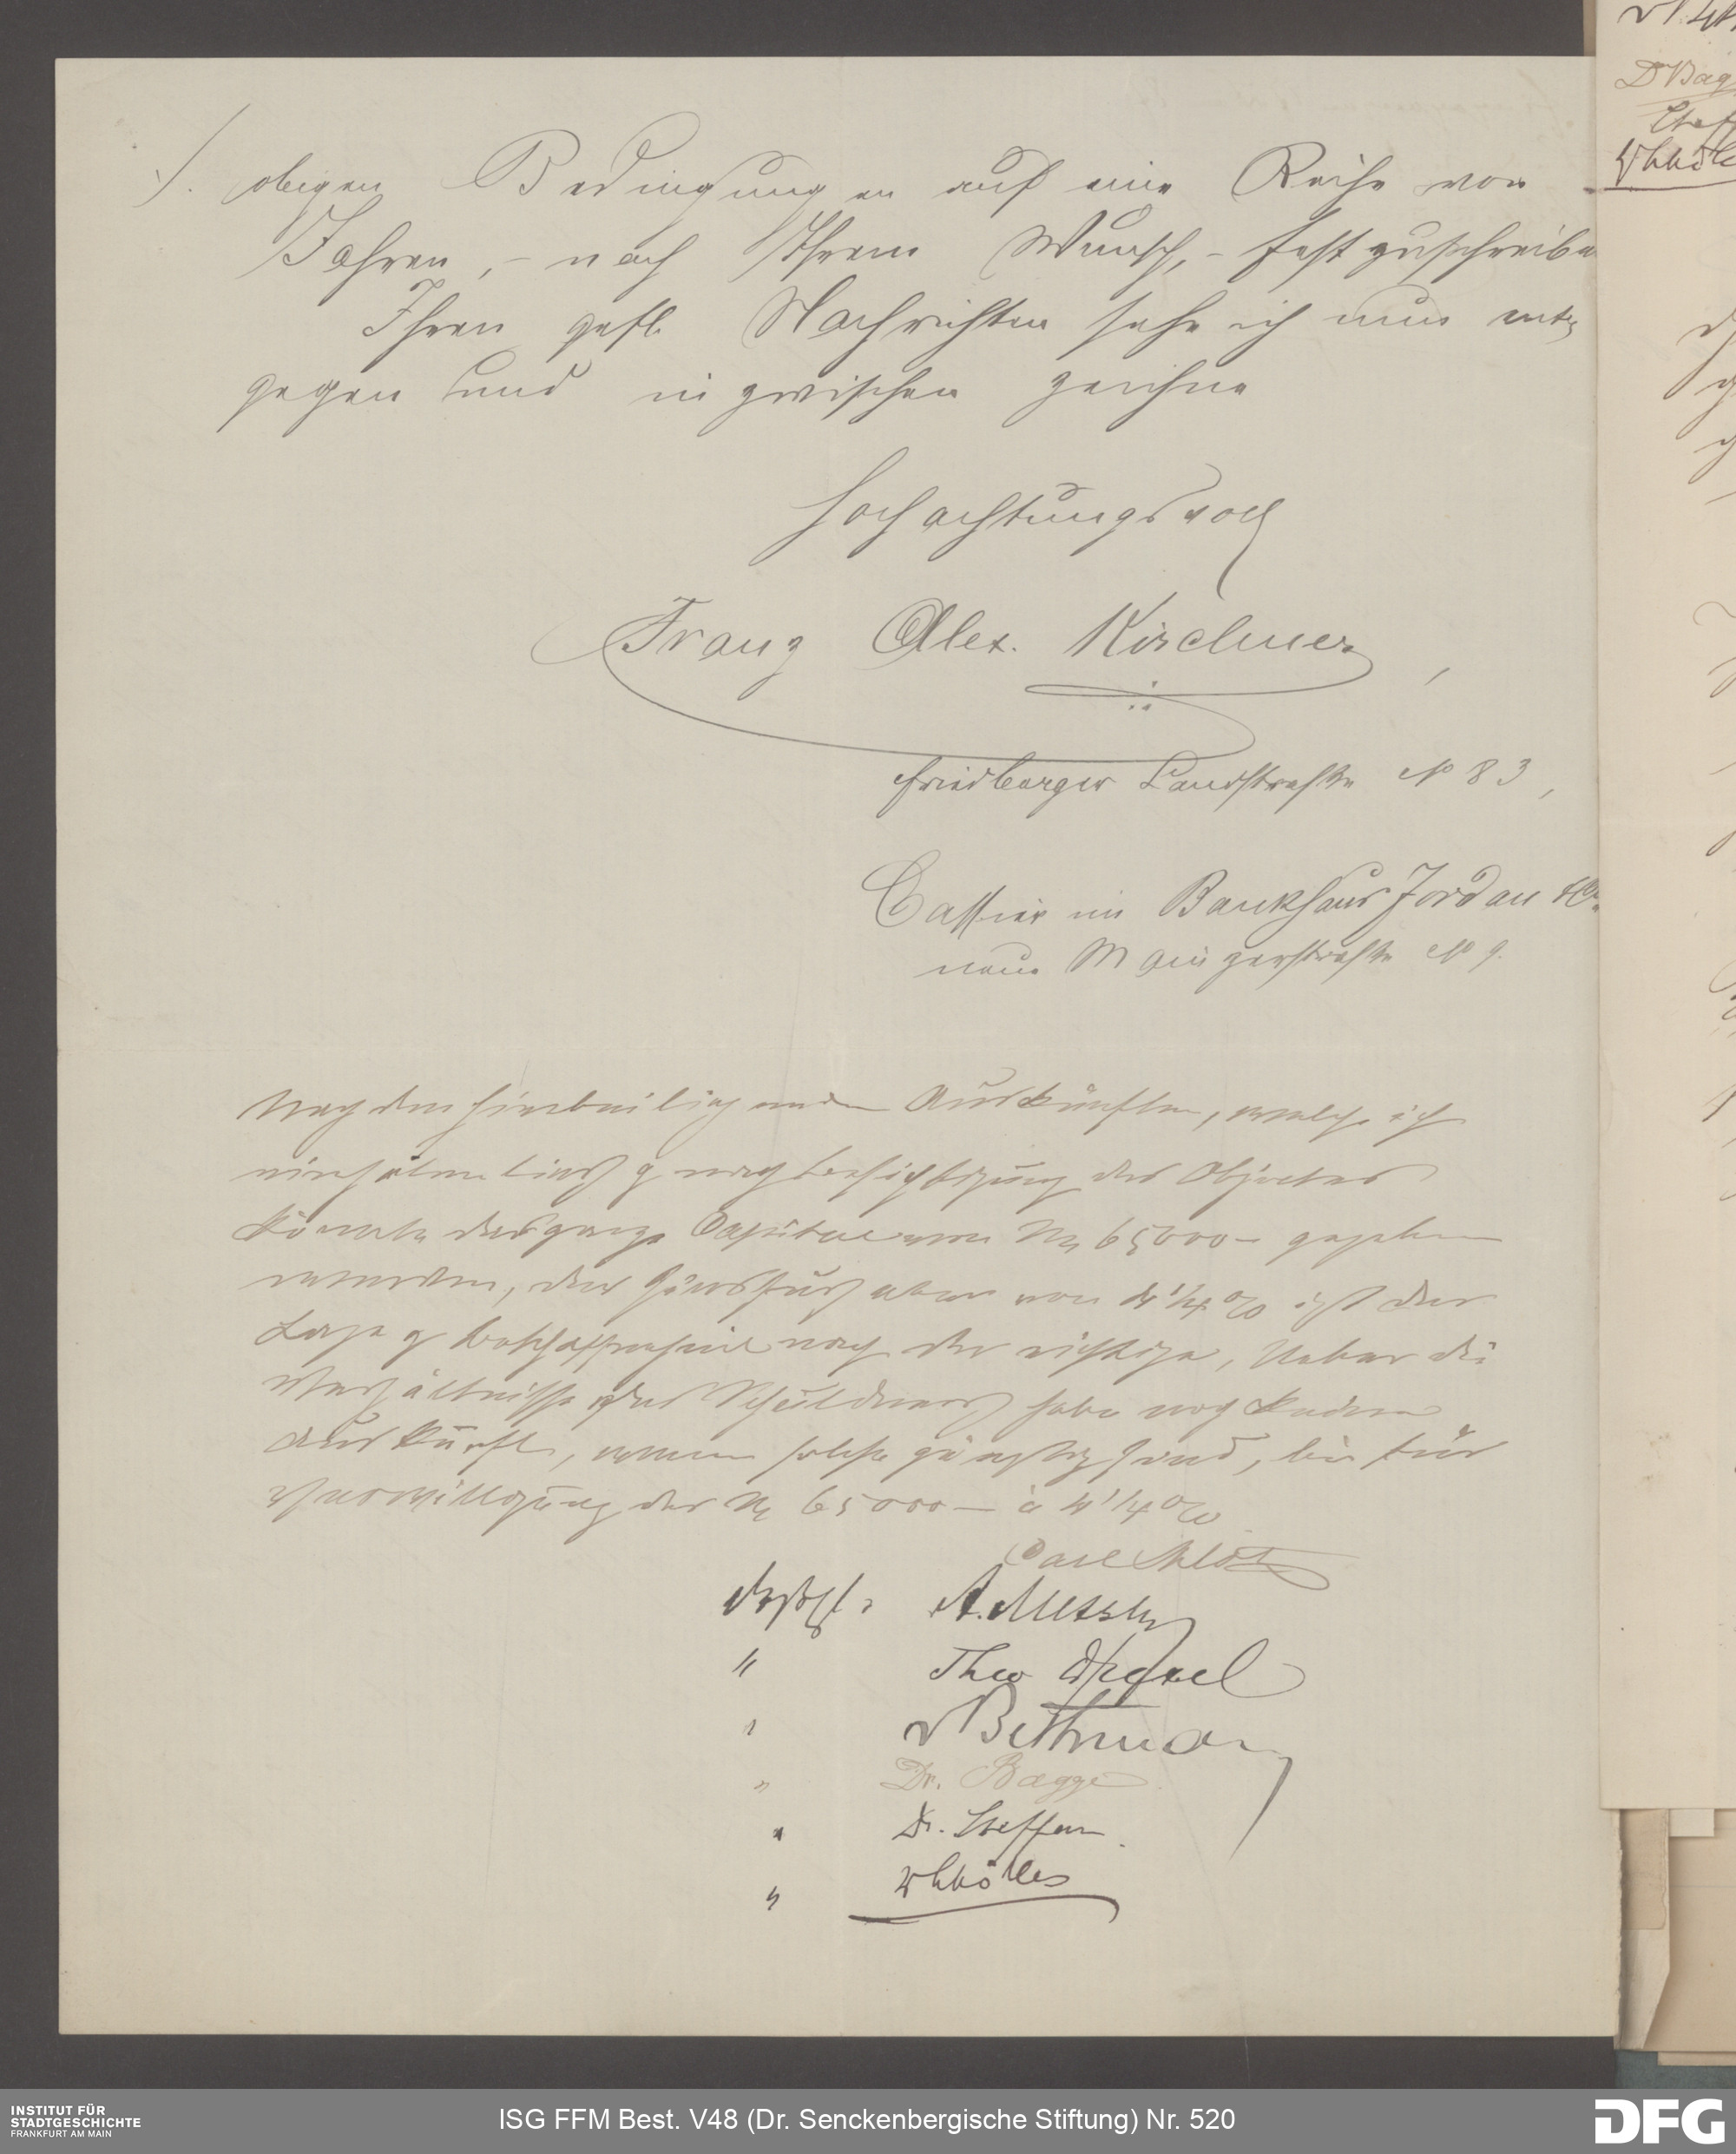 ./. obigen Bedingungen auf eine Reihe von
Jahren, – nach Ihrem Wunsch, – festzuschreiben
Ihren gefl. Nachrichten sehe ich nun ent-
gegen und inzwischen zeichne
Hochachtungsvoll
Franz Alex. Kirchner,
Friedberger Landstraße No 83,
Cassier im Bankhaus Jordan
neue Mainzerstraße No 9.
Nach den hierbeiliegenden Auskünften, welche ich
einholen ließ & nach Besichtigung des Objectes
könnte das ganze Capital von M 65000– gegeben
werden, der Zinsfuß aber von 4 1/4 % ist der
Lage & Beschaffenheit nach der richtige, Ueber die
Verhältnisse des Schuldners habe noch keine
Auskunft, wenn solche günstig sind, bin für
Bewilligung der M 65000– à 4 1/4 %
Carl
A. Metzler
" Theo
" v Bethmann
" Dr. Bagge
" Dr. Steffan
"
Dr Bag
ISG FFM Best. V48 (Dr. Senckenbergische Stiftung) Nr. 520
INSTITUT FÜR
STADTGESCHICHTE
FRANKFURT AM MAIN
DFG